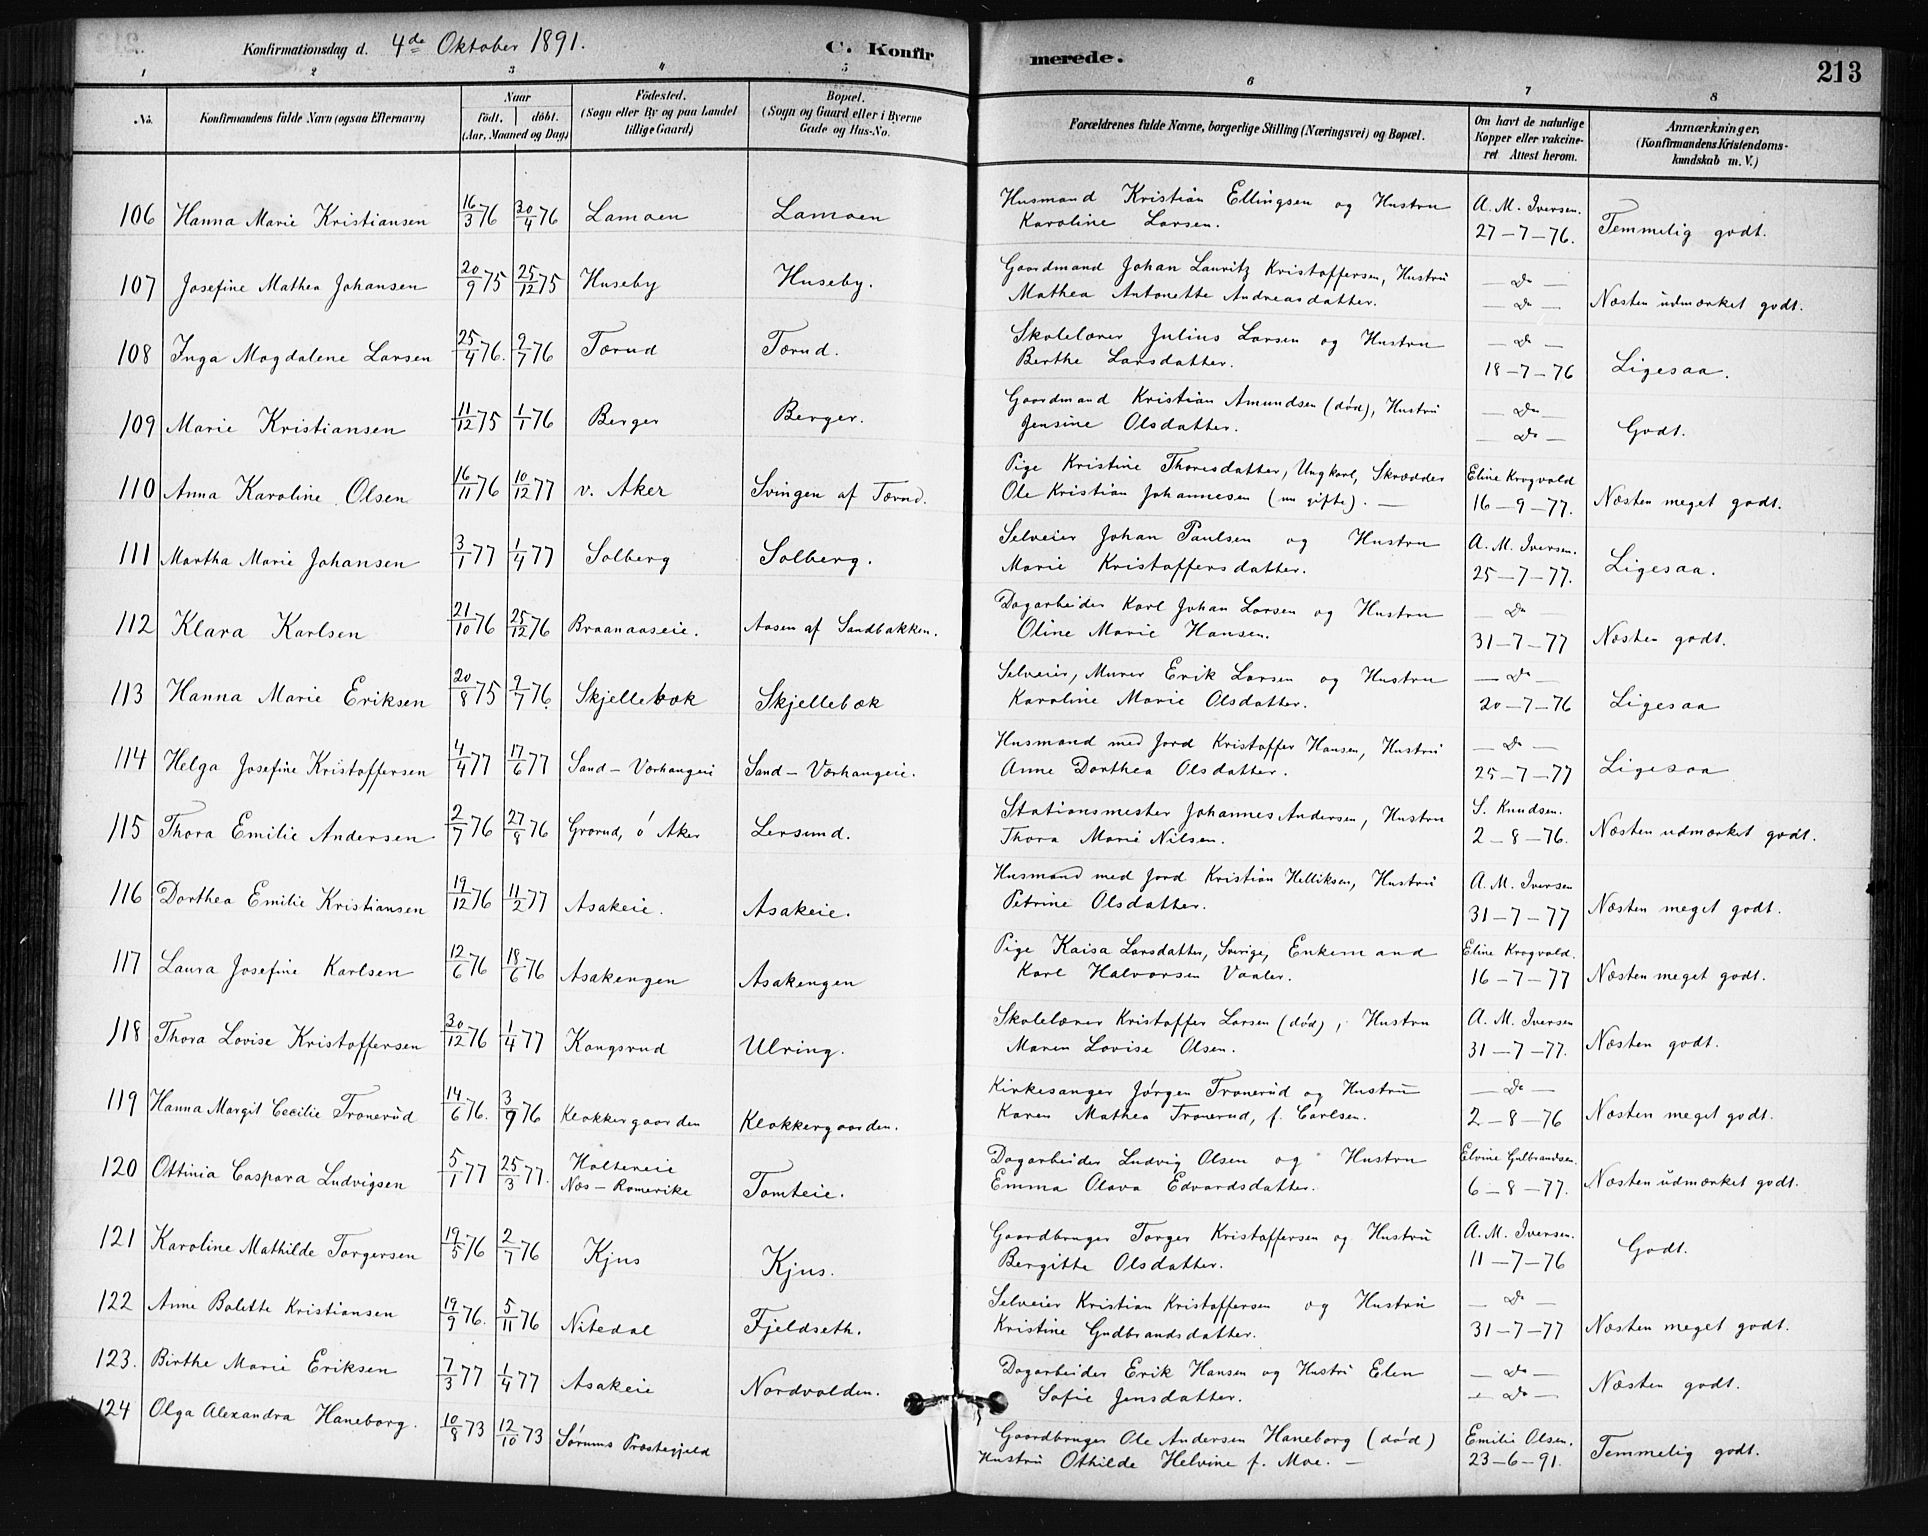 Konfirmationsdag d. 4de Oktober 1891.
C. Konfirmerede.
213
1 2 3 4 5 6 7 8
No.
Konfirmandens fulde Navn (ogsaa Efternavn)
Naar
födt. döbt.
(Aar, Maaned og Dag)
Födested.
(Sogn eller By og paa Landet
tillige Gaard)
Bopæl.
(Sogn og Gaard eller i Byerne
Gade og Hus-No.
Forældrenes fulde Navne, borgerlige Stilling (Næringsvei) og Bopæl.
Om havt de naturlige
Kopper eller vakcine-
ret Attest herom.
Anmærkninger.
(Konfirmandens Kristendoms-
kundskab m. V.)
106 Hanna Marie Kristiansen 16/3 76 30/4 76 Lamoen Lamoen Husmand Kristian Ellingsen og Hustru A. M. Iversen.
Karoline Larsen. 27-7-76. Temmelig godt.
107 Josefine Mathea Johansen 20/9 75 25/12 75 Huseby Huseby. Gaardmand Johan Lauritz Kristoffersen, Hustru — Do —
Mathea Antonette Andreasdatter. — Do — Næsten udmærket godt.
108 Inga Magdalene Larsen 25/4 76. 2/7 76 Tærud Tærud. Skolelærer Julius Larsen og Hustru — Do —
Berthe Larsdatter. 18-7-76 Ligesaa.
109 Marie Kristiansen 11/12 75 1/1 76 Berger Berger. Gaardmand Kristian Amundsen (död), Hustru — Do —
Jensine Olsdatter. — Do — Godt.
110 Anna Karoline Olsen 16/11 76 10/12 77 v. Aker Svingen af Tærud. Pige Kristine Thoresdatter, Ungkarl, Skrædder Eline Krogvold
Ole Kristian Johannesen (nu gifte). — 16-9-77. Næsten meget godt.
111 Martha Marie Johansen 3/1 77 1/4 77 Solberg Solberg. Selveier Johan Paulsen og Hustru A. M. Iversen.
Marie Kristoffersdatter. 25-7-77. Ligesaa.
112 Klara Karlsen 21/10 76 25/12 76 Braanaaseie. Aasen af Sandbakken. Dagarbeider Karl Johan Larsen og Hustru — Do —
Oline Marie Hansen. 31-7-77 Næsten godt.
113 Hanna Marie Eriksen 20/8 75 2/7 76. Skjellebæk Skjellebæk Selveier, Murer Erik Larsen og Hustru — Do —
Karoline Marie Olsdatter. 20-7-76 Ligesaa
114 Helga Josefine Kristoffersen 4/4 77 17/6 77 Sand-Vorhangeie Sand-Vorhangeie. Husmand med Jord Kristoffer Hansen, Hustru — Do —
Anne Dorthea Olsdatter. 25-7-77 Ligesaa
115 Thora Emilie Andersen 2/7 76 27/8 76 Grorud, ö Aker Lersund. Stationsmester Johannes Andersen, Hustru S. Knudsen.
Thora Marie Nilsen. 2-8-76. Næsten udmærket godt.
116 Dorthea Emilie Kristiansen 19/12 76 11/2 77 Asakeie. Asakeie. Husmand med Jord Kristian Helliksen, Hustru A. M. Iversen
Petrine Olsdatter. 31-7-77 Næsten meget godt.
117 Laura Josefine Karlsen 12/6 76 18/6 76 Asakengen Asakengen Pige Kaisa Larsdatter, Sverige, Enkemand Eline Krogvold.
Karl Halvorsen Vaaler. 16-7-77 Næsten meget godt.
118 Thora Lovise Kristoffersen 30/12 76 1/4 77 Kongsrud Ulring. Skolelærer Kristoffer Larsen (död), Hustru A. M. Iversen
Maren Lovise Olsen. 31-7-77. Næsten godt.
119 Hanna Margit Cecilie Tronerud 14/6 76. 3/9 76 Klokkergaarden Klokkergaarden. Kirkesanger Jörgen Tronerud og Hustru — Do —
Karen Mathea Tronerud, f. Carlsen. 2-8-76 Næsten meget godt.
120 Ottinia Caspara Ludvigsen 5/1 77 25/3 77. Haltereie Dagarbeider Ludvig Olsen og Hustru Elvine Gulbrandsen.
Næs-Romerike Tomteie. Emma Olava Edvardsdatter. 6-8-77. Næsten udmærket godt.
121 Karoline Mathilde Torgersen 19/5 76 2/7 76 Kjus Kjus. Gaardbruger Torger Kristoffersen og Hustru A. M. Iversen.
Bergitte Olsdatter. 11-7-76 Godt.
122 Anne Bolette Kristiansen 19/9 76. 5/11 76 Nitedal Fjeldseth. Selveier Kristian Kristoffersen og Hustru — Do —
Kristine Gudbrandsdatter. 31-7-77 Næsten meget godt.
123. Birthe Marie Eriksen 7/3 77 1/4 77 Asakeie Nordvolden. Dagarbeider Erik Hansen og Hustru Elen — Do —
Sofie Jensdatter. — Do — Næsten godt.
124 Olga Alexandra Haneborg. 10/8 73 12/10 73 Sörums Præstegjeld Gaardbruger Ole Andersen Haneborg (död) Emilie Olsen.
Hustru Othilde Helvine f. Moe. — 23-6-91. Temmelig godt.